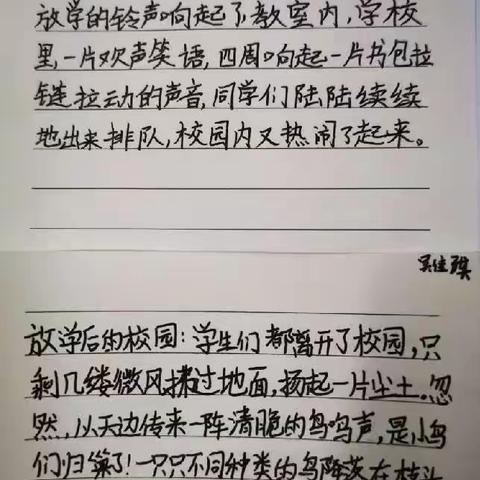 放学的铃声响起了,教室内,学校
里,一片欢声笑语,四周响起一片书包拉
链拉动的声音,同学们陆陆续续
地出来排队,校园内又热闹了起来。
吴佳琪
放学后的校园:学生们都离开了校园,只
剩几缕微风拂过地面,扬起一片尘土。忽
然,从天边传来一阵清脆的鸟鸣声,是小鸟
们归巢了!一只只不同种类的鸟降落在枝头